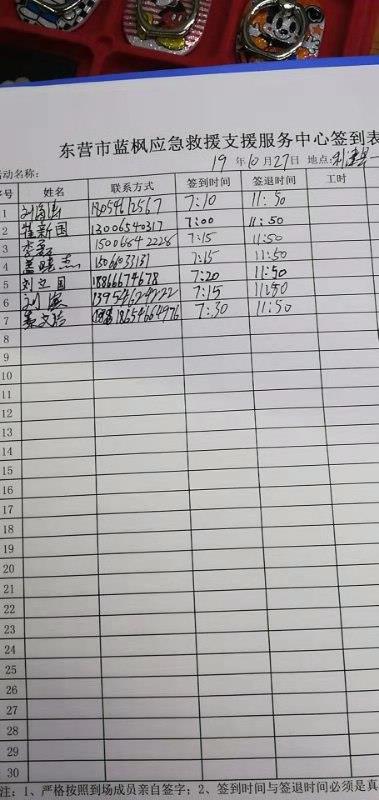 东营市蓝枫应急救援支援服务中心签到表
活动名称: 19 年 10 月 27 日 地点: 利津县
序号 姓名 联系方式 签到时间 签退时间 工时
1 7:10 11:50
2 崔新国 13006540317 7:00 11:50
3 15006842228 7:15 11:50
4 7:15 11:50
5 刘立国 18866674678 7:20 11:50
6 13954624222 7:15 11:50
7 18654664976 7:30 11:50
8
9
10
11
12
13
14
15
16
17
18
19
20
21
22
23
24
25
26
27
28
29
30
注: 1、严格按照到场成员亲自签字; 2、签到时间与签退时间必须是真